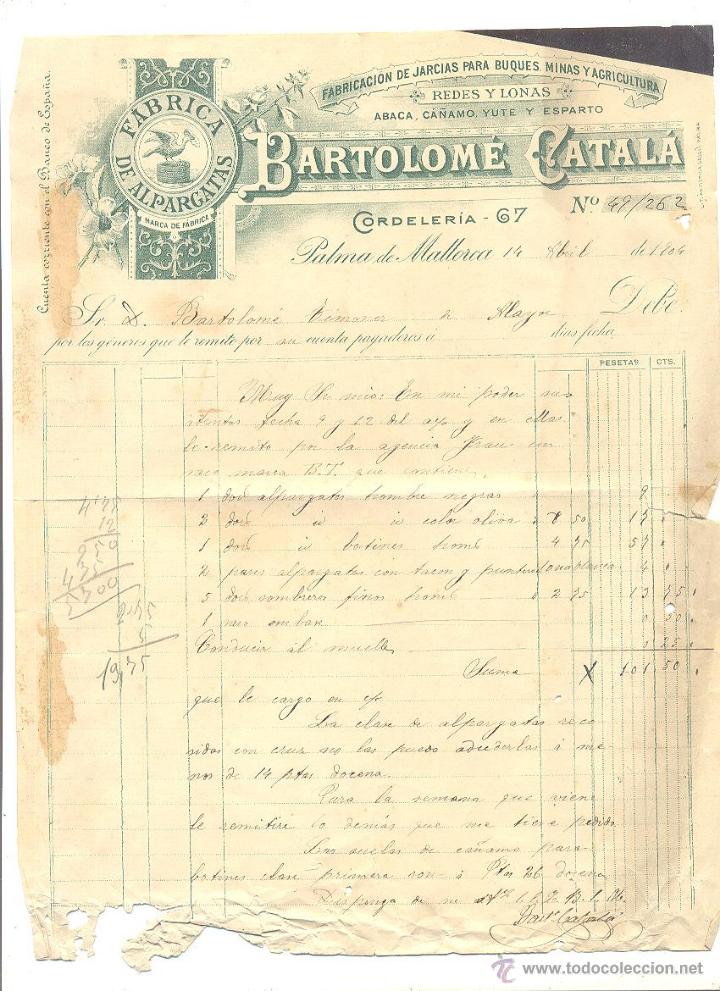 Cuenta corriente con el Banco de España.
FÁBRICA
DE ALPARGATAS
MARCA DE FÁBRICA
FABRICACIÓN DE JARCIAS PARA BUQUES, MINAS Y AGRICULTURA
REDES Y LONAS
ABACÁ, CÁÑAMO, YUTE Y ESPARTO
BARTOLOMÉ CATALÁ
CORDELERÍA - 67
Nº 49/262
Palma de Mallorca 14 Abril de 1904
Sr. D. Bartolomé de Debe
por los géneros que le remito por su cuenta pagaderos á días fecha
PESETAS CTS.
Muy Sr mio: En mi poder sus
atentas fecha 9 y 12 del y en
le remito por la agencia un
saco marca B.T. que contiene
1 doc alpargatas hombre negras 9
2 doc id id color oliva 8 50 17
1 doc id botines 4 75 57
2 pares alpargatas con tacon y 4
5 doc sombreros finos 2 75 13 75
1 saco 0 50
Conducir al muelle 0 25
Suma X 101 50
4'75
12
9 50
47 5
57 00
2'75
5
19,75
que le cargo en c/c
La clase de alpargatas reco
sidas con cruz no las puedo á me
nos de 14 ptas docena.
Para la semana que viene
le remitiré lo demás que me tiene pedido
Las suelas de cáñamo para
botines clase primera son á Ptas 26 docena
Disponga de su
Bart Catalá
www.todocoleccion.net